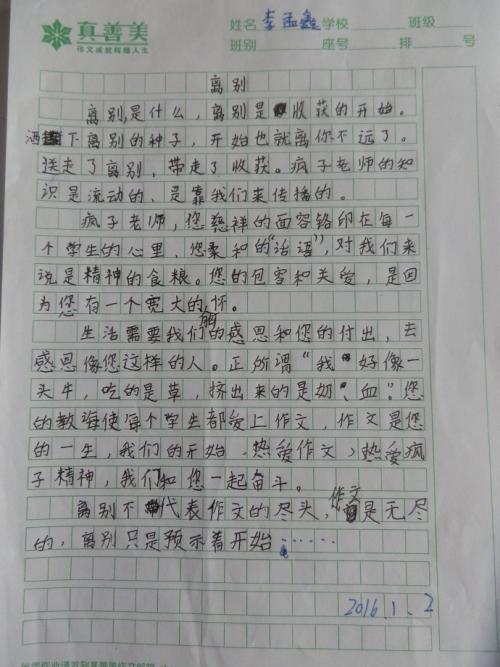 真善美
作文成就辉煌人生
姓名 李孟鑫 学校 班级
班别 座号 排 号
离别
离别是什么，离别是收获的开始。
洒下离别的种子，开始也就离你不远了。
送走了离别，带走了收获。疯子老师的知
识是流动的，是靠我们来传播的。
疯子老师，您慈祥的面容铬印在每一
个学生的心里，您柔和的“话语”，对我们来
说是精神的食粮。您的包容和关爱，是因
为您有一个宽大的胸怀。
生活需要我们的感恩和您的付出，去
感恩像您这样的人。正所谓“我好像一
头牛，吃的是草，挤出来的是奶、血”。您
的教诲使每个学生都爱上作文，作文是您
的一生，我们的开始，热爱作文，热爱疯
子精神，我们和您一起奋斗。
离别不代表作文的尽头，作文是无尽
的，离别只是预示着开始……
2016.1.2